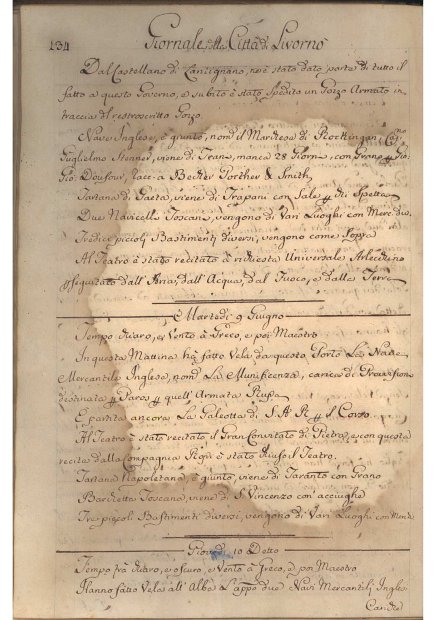 134 Giornale della Città di Livorno
Dal Castellano di Cantignano, non è stato dato parte di tutto il
fatto a questo Governo, e subito è stato spedito un Gozo Armato in
traccia del retroscritto Gozo.
Nave Inglese, è giunto, nom.
Guglielmo Stenner, viene di manca 28 Giorni, con Grano
Gio: Doufour, racc: a Becher &. Smith,
Tartana di Gaeta, viene di Trapani con Sale
Due Navicelle Toscane, vengono di Vari Luoghi con Merc: die
Tredici piccoli Bastimenti diversi, vengono come Sopra
Al Teatro è stato recitato à richiesta Universale Arlechino
osseguitato dall' Aria, dall' Acqua, dal Fuoco, e dalla Terra
Martedi 9 Giugno
Tempo chiaro, e Vento à Greco, e poi Maestro
In questa Mattina hà fatto Vela da questo Porto La Nave
Mercantile Inglese, nom: La Munificenza, carica di Provisioni
destinata Paros quell' Armata Russa
È partita ancora La Galeotta di S. A. R. il Corso.
Al Teatro è stato recitato il Gran Convitato di Pietra, e con questa
recita dalla Compagnia Roffi è stato chiuso il Teatro.
Tartana Napoletana, è giunto, viene di Taranto con Grano
Barchetta Toscana, viene di S. Vincenzo con acciughe
Tre piccoli Bastimenti diversi, vengono di Vari Luoghi con Merc: die
Giovedi 10 Detto
Tempo trà chiaro, e oscuro, e Vento à Greco, e poi Maestro
Hanno fatto Vela all' Alba Lappo due Navi Mercantili Ingle